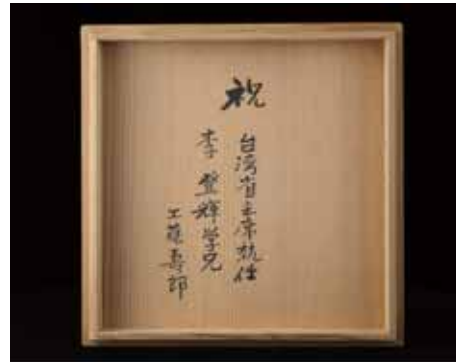 祝
台湾省主席就任
李登輝学兄
工藤寿郎